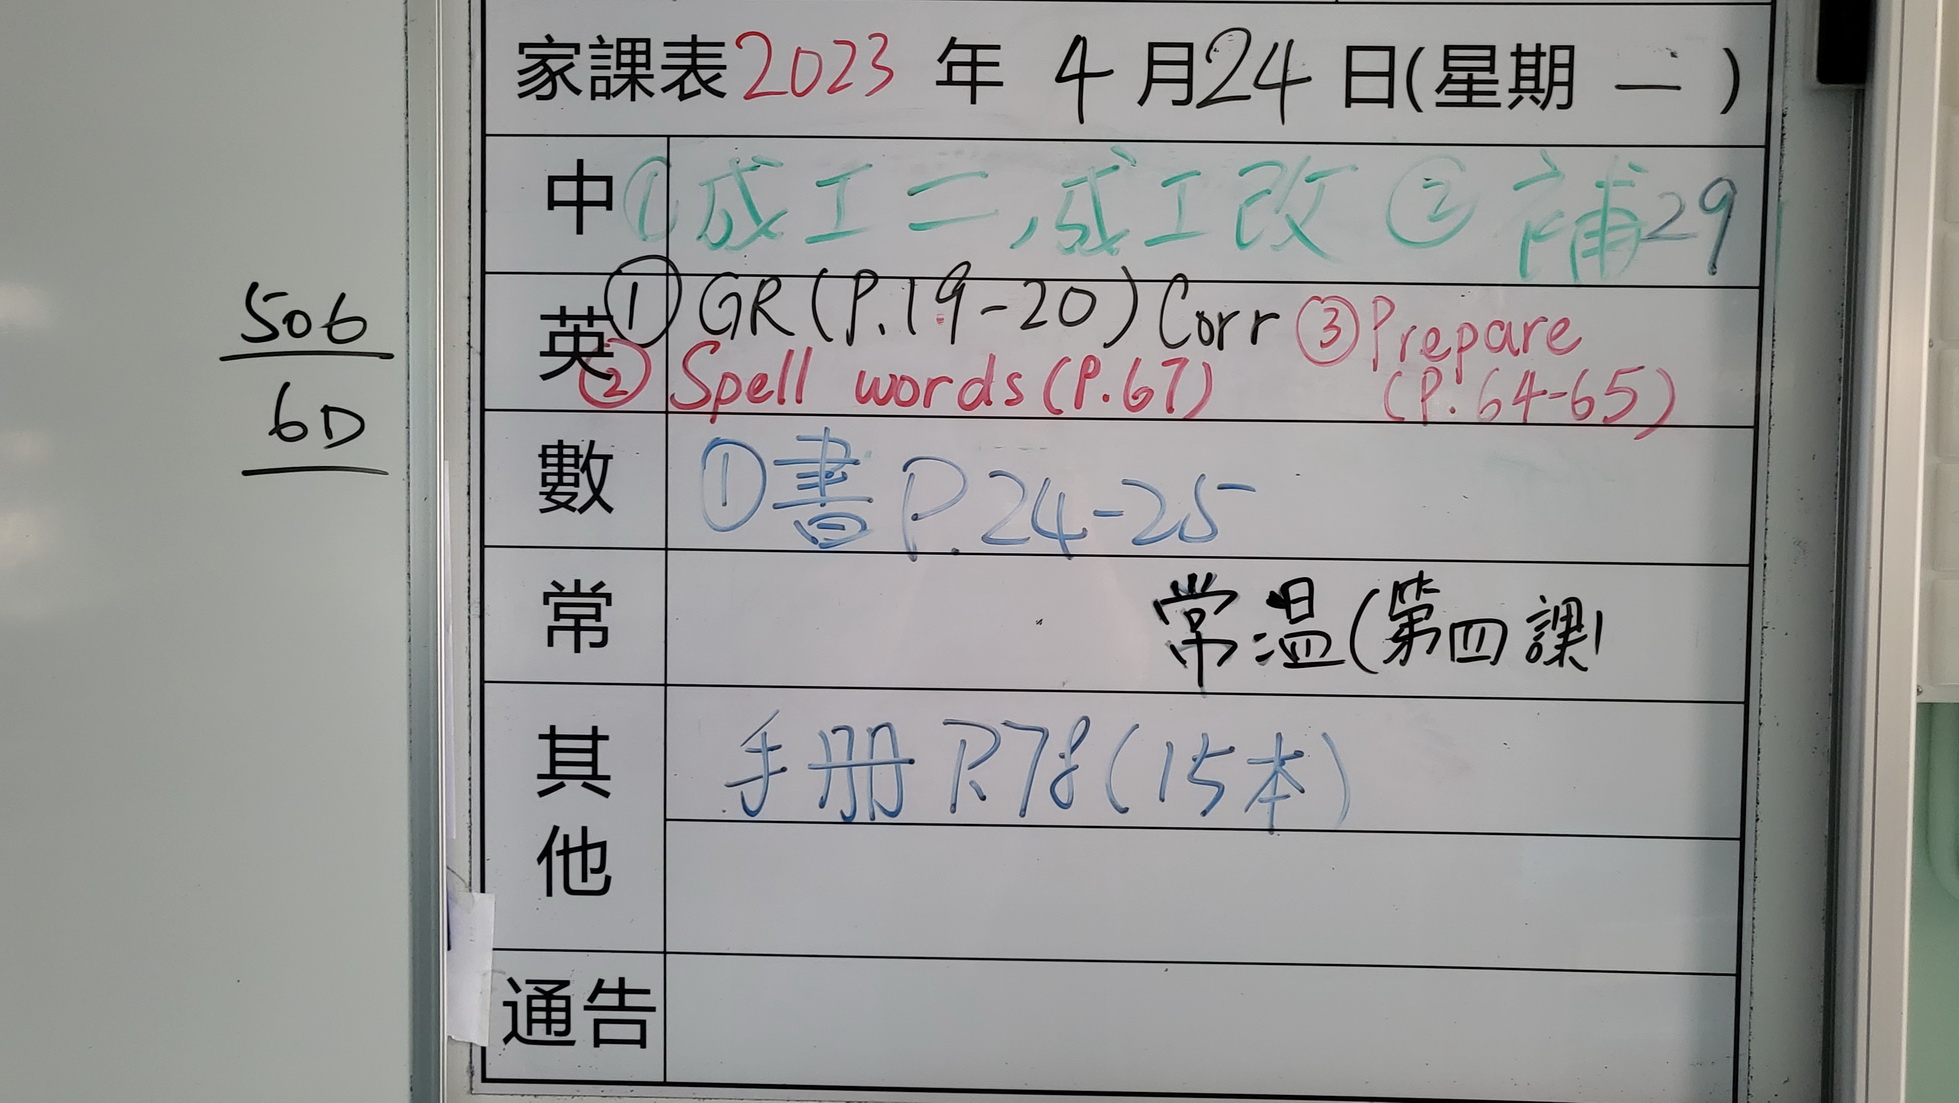 家課表2023年4月24日(星期一)
中 ①成工二,成工改 ②補29
英 ①GR(P.19-20)Corr ③Prepare
②Spell words(P.67) (P.64-65)
506
6D
數 ①書P.24-25
常 常温(第四課)
其他 手册P.78(15本)
通告